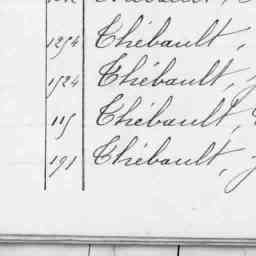 1254 Thébault,
1524 Thébault,
115 Thébault,
191 Thébault,